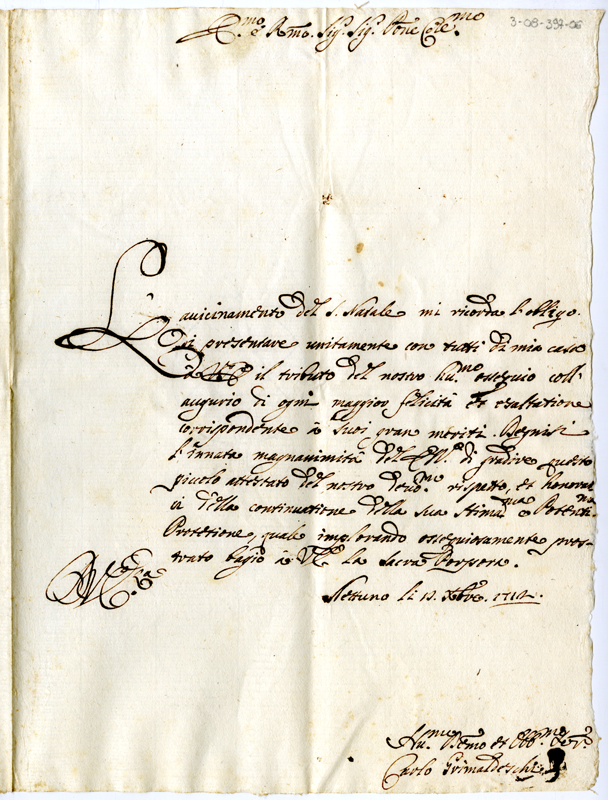 3-08-397-06
E.mo e Rmo. Sig. Sig. Pñe Col.mo
L'auicinamento del S. Natale mi ricorda l'obligo
di presentare unitamente con tutti di mia casa
à V.E. il tributo del nostro hu.mo ossequio coll'
augurio di ogni maggior felicità et esaltatione
corrispondente à suoi gran meriti. Degnisi
l'innata magnanimità dell'E.V. di gradire questo
piccolo attestato del nostro deuo.mo rispetto, et honorar
ci della continuatione della sua Stima.ma e Potenti.ma
Protetione, quale implorando ossequiosamente pros-
trato bagio à V.E. la Sacra Porpora.
Nettuno li 12. Xbre. 1712.
Hu.mo D.mo et Obb.mo Ser.e
Carlo Grimaldeschi